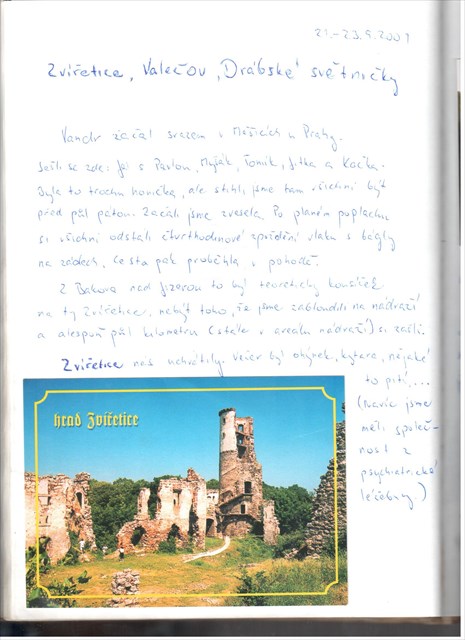 21.-23.9.2001
Zvířetice, Valečov, Drábské světničky
Vandr začal srazem v Měšicích u Prahy.
Sešli se zde: Já s Pavlou, Myšák, Tomík, Jitka a Kočka.
Byla to trochu honička, ale stihli jsme tam všichni být
před půl pátou. Začali jsme zvesela. Po planém poplachu
si všichni odstáli čtvrthodinové zpoždění vlaku s bágly
na zádech, cesta pak proběhla v pohodě.
Z Bakova nad Jizerou to byl teoreticky kousíček
na ty Zvířetice, nebýt toho, že jsme zabloudili na nádraží
a alespoň půl kilometru (stále v areálu nádraží) si zašli.
Zvířetice nás uchvátily. Večer byl ohýnek, kytara, nějaké
to pití,...
(navíc jsme
měli společ-
nost z
psychiatrické
léčebny)
hrad Zvířetice